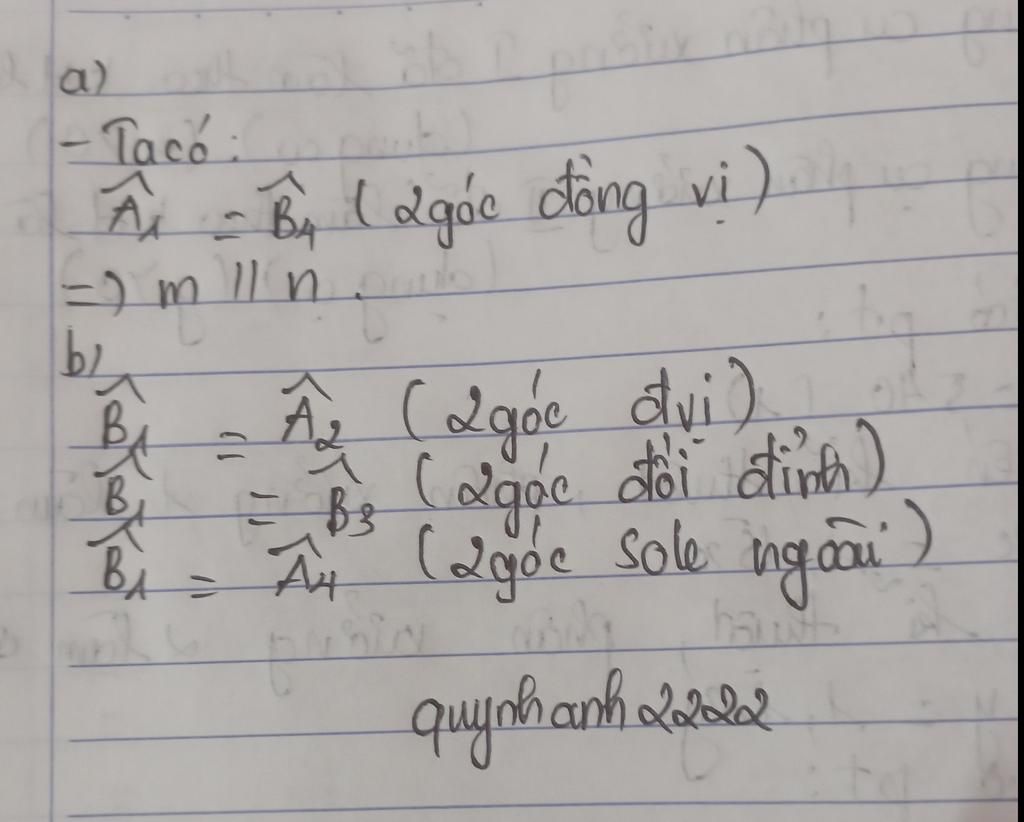 a)
- Ta có:
Â₁ = B̂₄ (2 góc đồng vị)
=) m // n.
b)
B̂₁ = Â₂ (2 góc đvị)
B̂₁ = B̂₃ (2 góc đối đỉnh)
B̂₁ = Â₄ (2 góc sole ngoài)
quynhanh2222